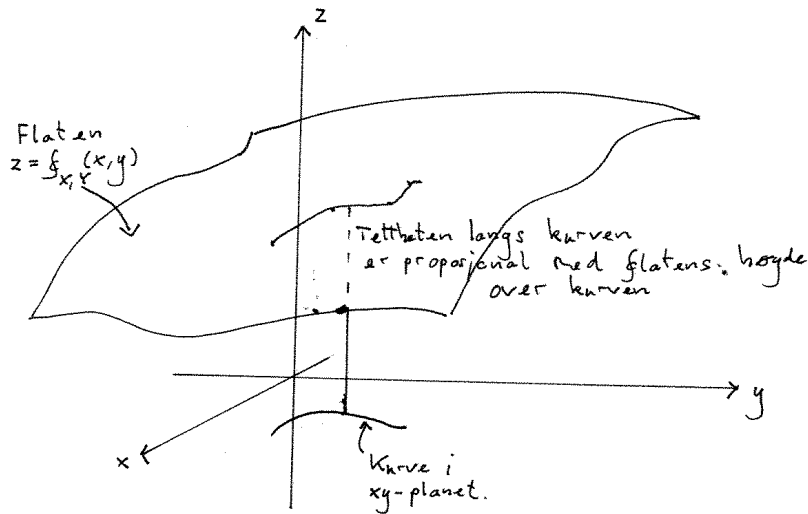 z
Flaten
z = f_{X,Y}(x,y)
Tettheten langs kurven
er proposjonal med flatens høyde
over kurven
y
x
Kurve i
xy-planet.